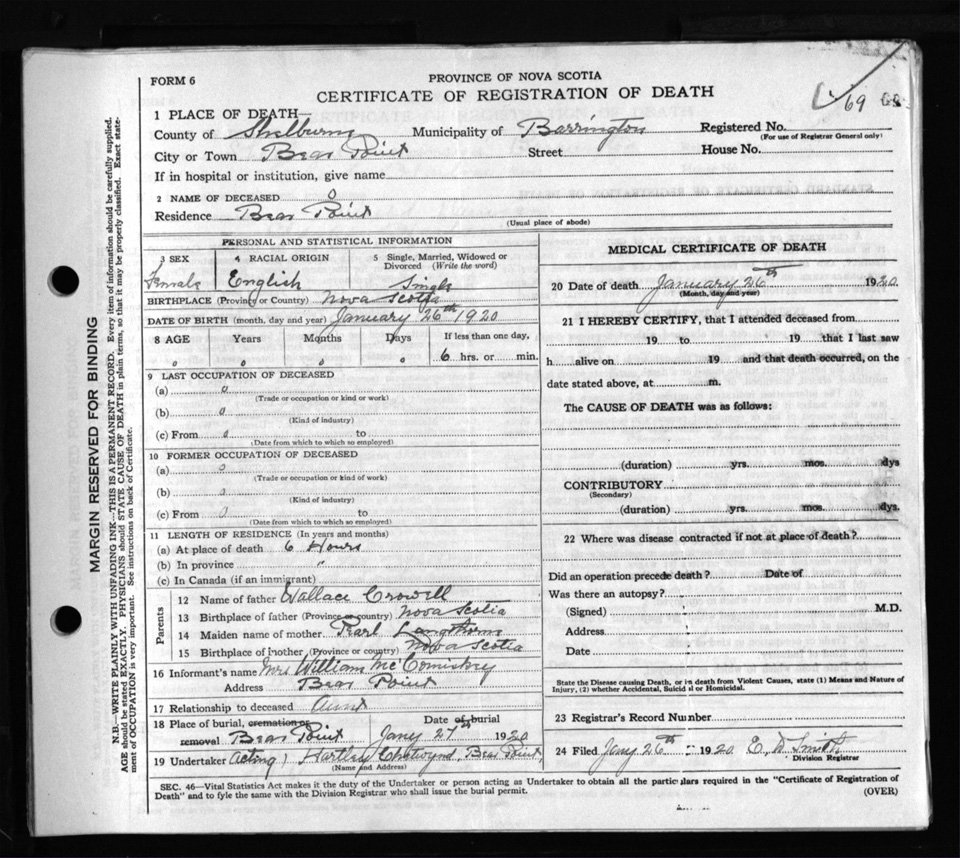 FORM 6
PROVINCE OF NOVA SCOTIA
CERTIFICATE OF REGISTRATION OF DEATH
69
1 PLACE OF DEATH—
County of Shelburne Municipality of Barrington Registered No.
(For use of Registrar General only)
City or Town Bear Point Street House No.
If in hospital or institution, give name
2 NAME OF DECEASED 0
Residence Bear Point
(Usual place of abode)
PERSONAL AND STATISTICAL INFORMATION
3 SEX 4 RACIAL ORIGIN 5 Single, Married, Widowed or Divorced (Write the word)
Female English Single
BIRTHPLACE (Province or Country) Nova Scotia
DATE OF BIRTH (month, day and year) January 26th 1920
8 AGE Years Months Days If less than one day,
0 0 0 0 6 hrs. or min.
9 LAST OCCUPATION OF DECEASED
(a) 0
(Trade or occupation or kind or work)
(b) 0
(Kind of industry)
(c) From 0 to
(Date from which to which so employed)
10 FORMER OCCUPATION OF DECEASED
(a) 0
(Trade or occupation or kind of work)
(b) 0
(Kind of industry)
(c) From 0 to
(Date from which to which so employed)
11 LENGTH OF RESIDENCE (In years and months)
(a) At place of death 6 Hours
(b) In province "
(c) In Canada (if an immigrant)
Parents
12 Name of father Wallace Crowell
13 Birthplace of father (Province or country) Nova Scotia
14 Maiden name of mother Pearl
15 Birthplace of mother (Province or country) Nova Scotia
16 Informant's name Mrs William McComiskey
Address Bear Point
17 Relationship to deceased Aunt
18 Place of burial, cremation or removal Bear Point Date of burial Jany 27th 1920
19 Undertaker Acting, Hartley Chetwynd, Bear Point,
(Name and Address)
MEDICAL CERTIFICATE OF DEATH
20 Date of death January 26th 1920
(Month, day and year)
21 I HEREBY CERTIFY, that I attended deceased from
19 to 19 that I last saw
h alive on 19 and that death occurred, on the
date stated above, at m.
The CAUSE OF DEATH was as follows:
(duration) yrs. mos. dys
CONTRIBUTORY
(Secondary)
(duration) yrs. mos. dys.
22 Where was disease contracted if not at place of death?
Did an operation precede death? Date of
Was there an autopsy?
(Signed) M.D.
Address
Date
State the Disease causing Death, or in death from Violent Causes, state (1) Means and Nature of
Injury, (2) whether Accidental, Suicidal or Homicidal.
23 Registrar's Record Number
24 Filed Jany 26th 1920 E. D Smith
Division Registrar
SEC. 46—Vital Statistics Act makes it the duty of the Undertaker or person acting as Undertaker to obtain all the particulars required in the "Certificate of Registration of
Death" and to fyle the same with the Division Registrar who shall issue the burial permit. (OVER)
MARGIN RESERVED FOR BINDING
N.B.—WRITE PLAINLY WITH UNFADING INK—THIS IS A PERMANENT RECORD. Every item of information should be carefully supplied.
AGE should be stated EXACTLY. PHYSICIANS should STATE CAUSE OF DEATH in plain terms, so that it may be properly classified. Exact state-
ment of OCCUPATION is very important. See instructions on back of Certificate.